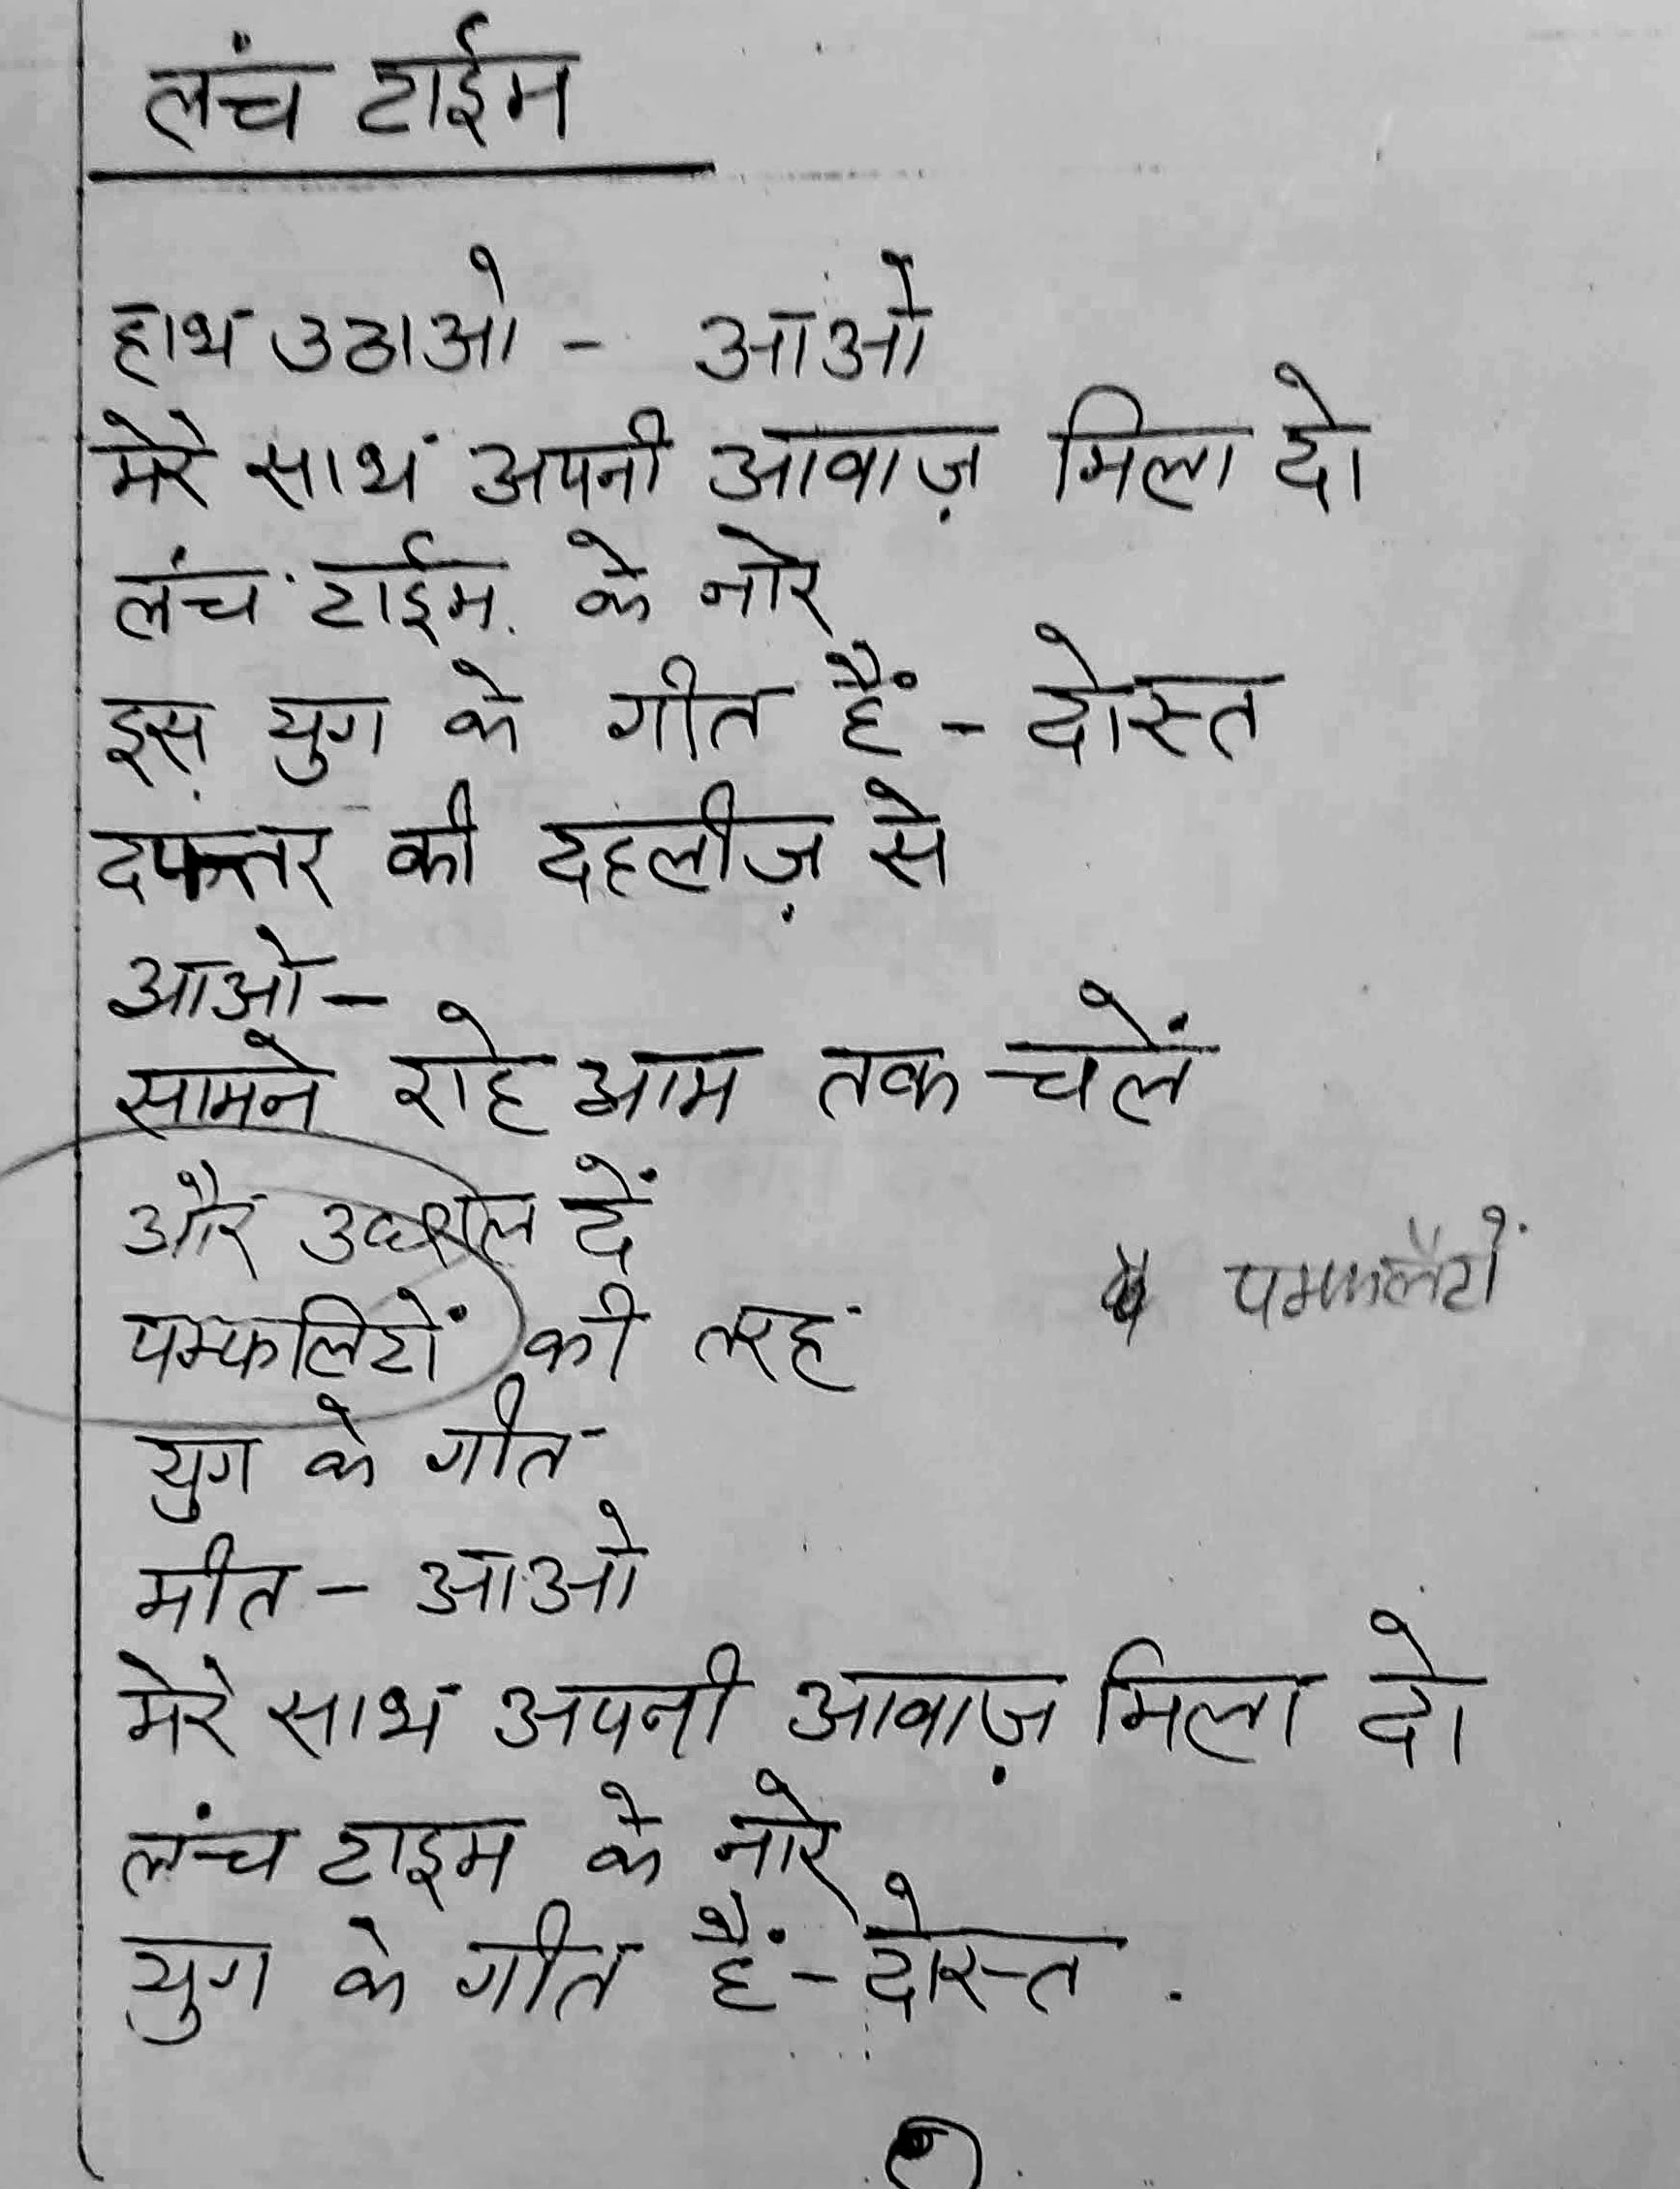 लंच टाईम
हाथ उठाओ - आओ
मेरे साथ अपनी आवाज़ मिला दो
लंच टाईम के नारे
इस युग के गीत हैं - दोस्त
दफ्तर की दहलीज़ से
आओ -
सामने राहे आम तक चलें
और उछाल दें
पम्फलिटों की तरह
पम्फलैटों
युग के गीत
मीत - आओ
मेरे साथ अपनी आवाज़ मिला दो
लंच टाइम के नारे
युग के गीत हैं - दोस्त .